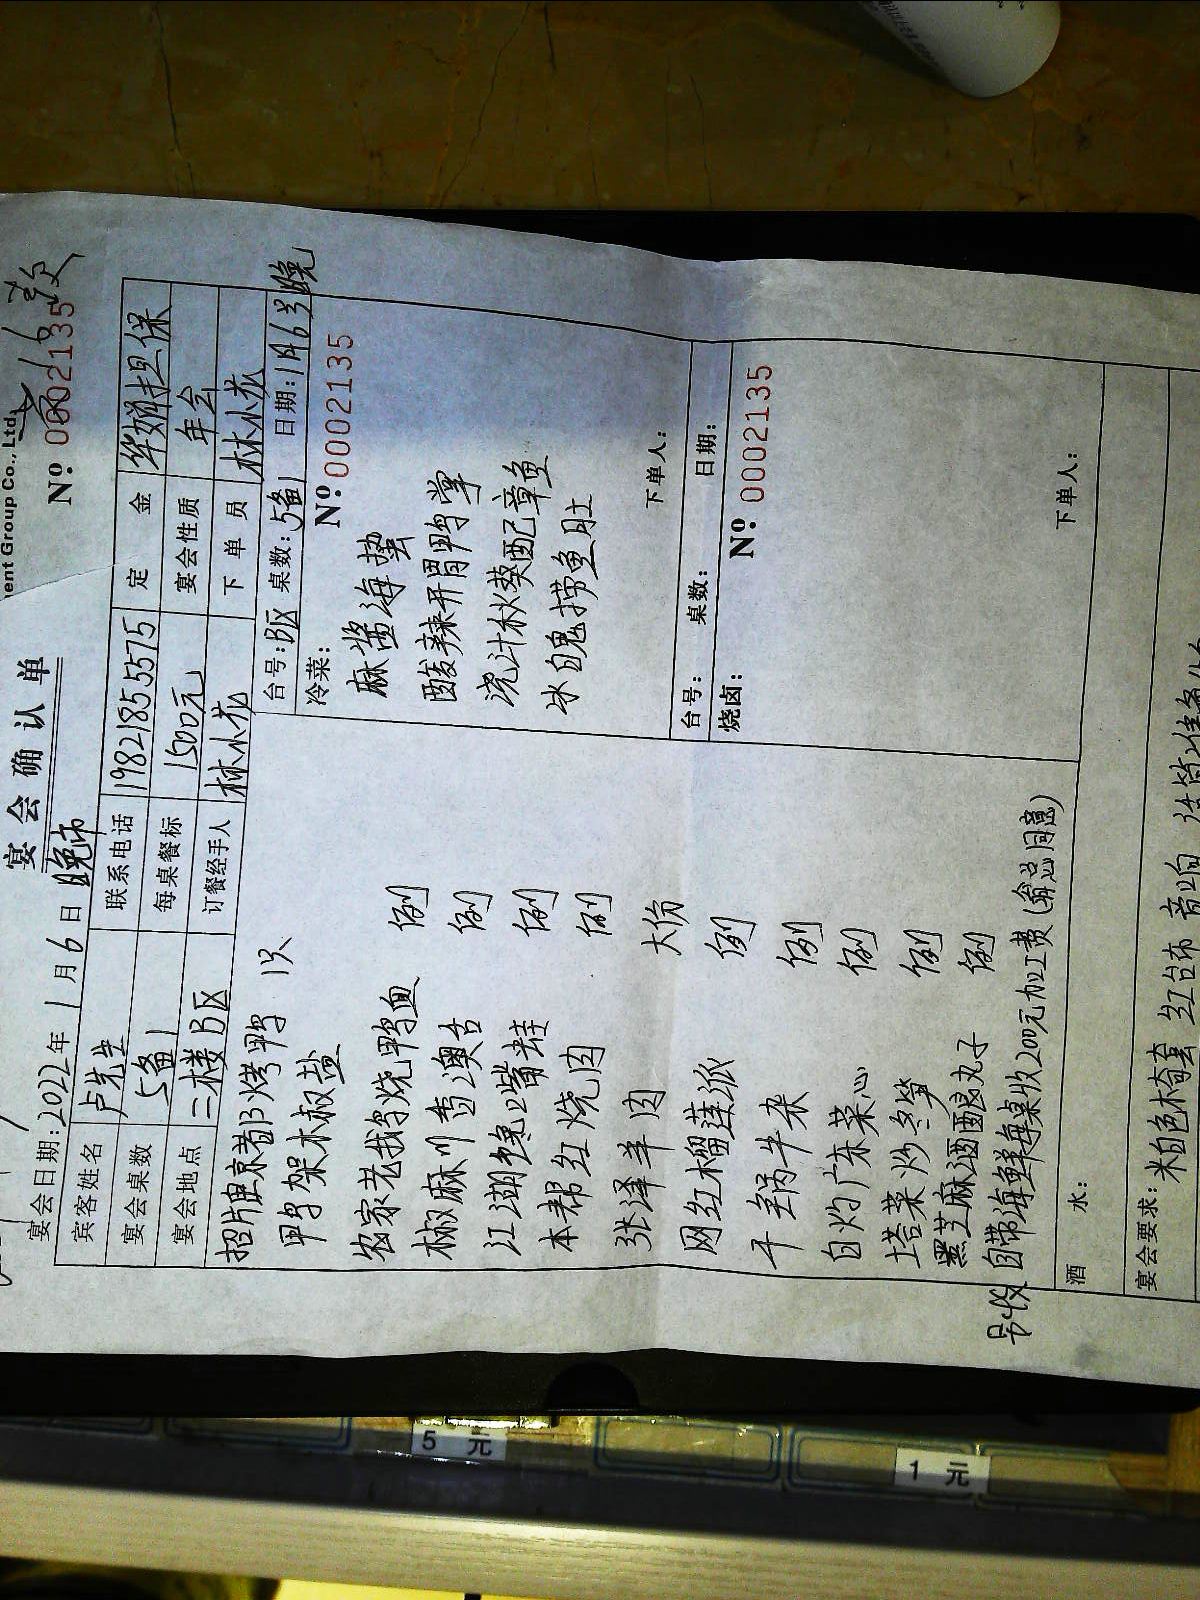 ent Group Co.,Ltd
宴会确认单
No 0002135
宴会日期:2022年1月6日 晚市
宾客姓名 卢先生 联系电话 19821855575 定金 华娟担保
宴会桌数 5备1 每桌餐标 1500元 宴会性质 年会
宴会地点 三楼B区 订餐经手人 林小花 下单员 林小花
招牌京都烤鸭 1只
鸭架木椒盐
农家老找鸭烧鸭血 例
椒麻川香澳舌 例
江湖馋嘴蛙 例
本帮红烧肉 例
张泽羊肉 大份
网红榴莲派 例
干锅牛杂 例
白灼广东菜心 例
塔菜炒冬笋 例
黑芝麻酒酿丸子 例
另收 自带海鲜每桌收200元加工费(翁总同意)
台号:B区 桌数:5备1 日期:1月6号 晚
冷菜:
No:0002135
麻酱海蜇
酸辣开胃鸭掌
浇汁秋葵配章鱼
水自鬼捞鱼肚
下单人:
台号: 桌数: 日期:
烧卤:
No:0002135
下单人:
酒水:
宴会要求: 米白色椅套 红台布 音响
5元
1元